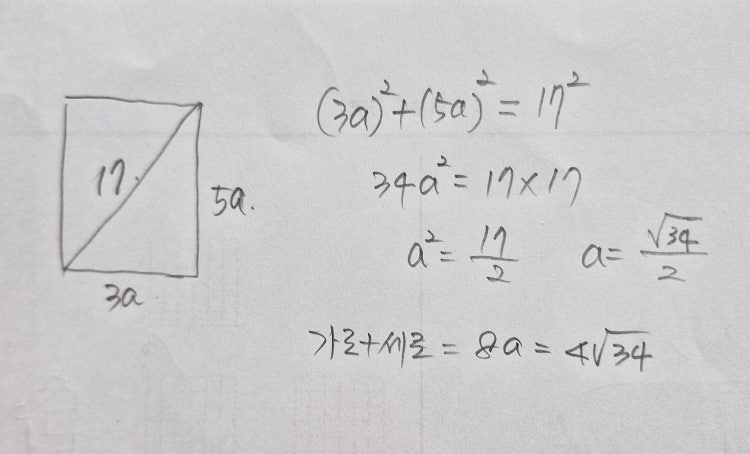 17
5a.
3a
(3a)² + (5a)² = 17²
34a² = 17 × 17
a² = 17/2  a = √34/2
가로+세로 = 8a = 4√34